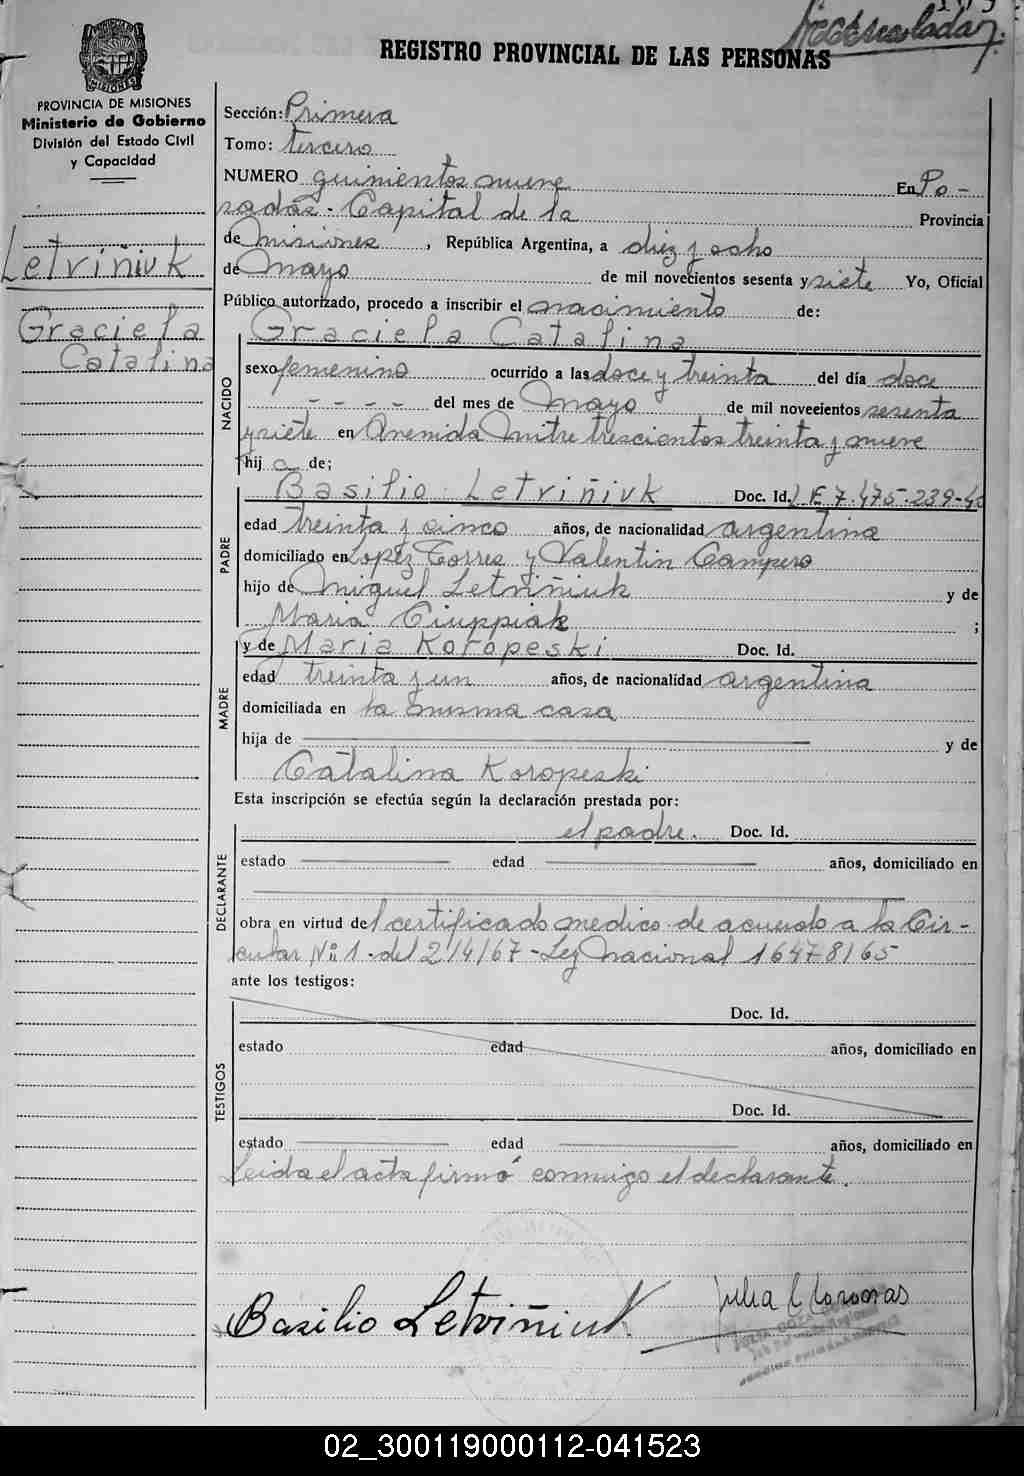 REGISTRO PROVINCIAL DE LAS PERSONAS
PROVINCIA DE MISIONES
Ministerio de Gobierno
División del Estado Civil
y Capacidad
Letviñiuk
Graciela
Catalina
Sección: Primera
Tomo: tercero
NUMERO quinientos nueve En Po-
sadas - Capital de la Provincia
de Misiones, República Argentina, a diez y ocho
de Mayo de mil novecientos sesenta y siete Yo, Oficial
Público autorizado, procedo a inscribir el nacimiento de:
NACIDO
Graciela Catalina
sexo femenino ocurrido a las doce y treinta del día doce
- - - - del mes de Mayo de mil novecientos sesenta
y siete en Avenida Mitre trescientos treinta y nueve
hij a de;
PADRE
Basilio Letviñiuk Doc. Id. L E 7.475.239-
edad treinta y cinco años, de nacionalidad argentina
domiciliado en Lopez Torres y Valentin Campero
hijo de Miguel Letviñiuk y de
Maria Ciuppiak ;
MADRE
y de Maria Koropeski Doc. Id.
edad treinta y un años, de nacionalidad argentina
domiciliada en la misma casa
hija de y de
Catalina Koropeski
Esta inscripción se efectúa según la declaración prestada por:
DECLARANTE
el padre. Doc. Id.
estado edad años, domiciliado en
obra en virtud del certificado medico de acuerdo a la Cir-
cular Nº 1 - del 2/4/67 - Ley Nacional 16478/65
ante los testigos:
TESTIGOS
Doc. Id.
estado edad años, domiciliado en
Doc. Id.
estado edad años, domiciliado en
Leida el acta firmó conmigo el declarante.
Basilio Letviñiuk.
02_300119000112-041523